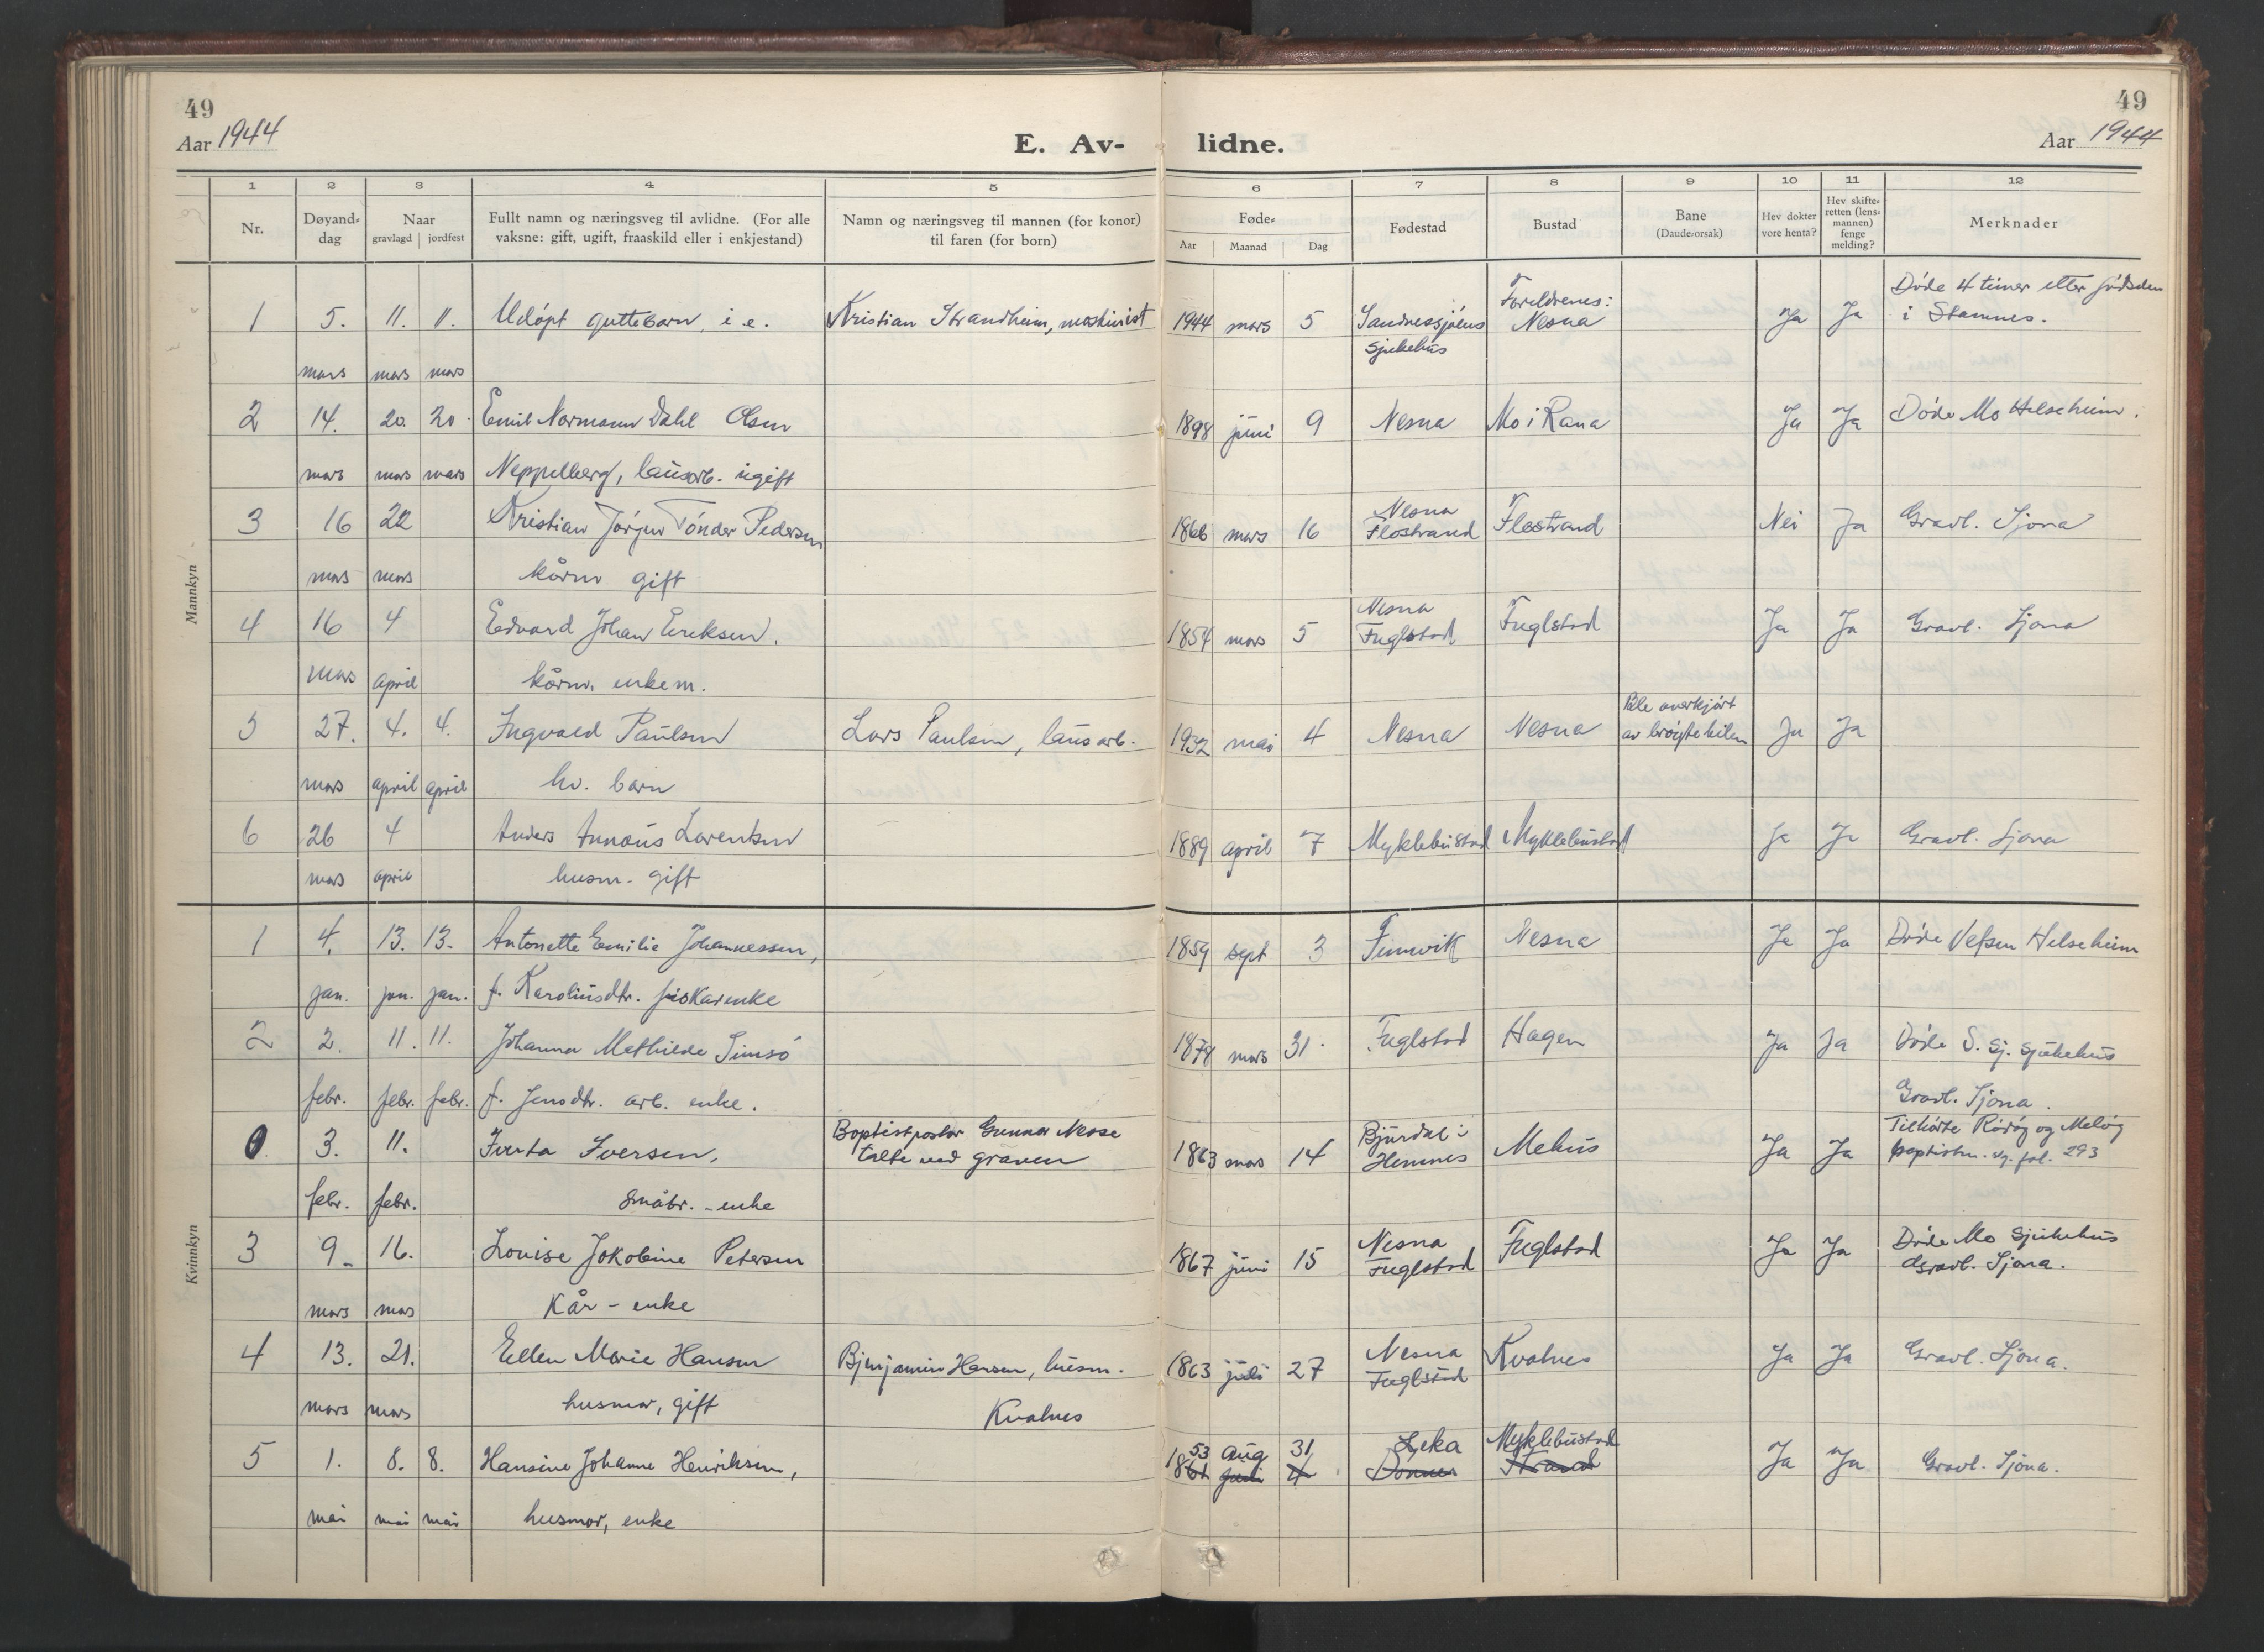 49
Aar 1944
E. Av-
lidne.
49
Aar 1944
1 2 3 4 5 6 7 8 9 10 11 12
Nr.
Døyand-
dag
Naar
gravlagd jordfest
Fullt namn og næringsveg til avlidne. (For alle
vaksne: gift, ugift, fraaskild eller i enkjestand)
Namn og næringsveg til mannen (for konor)
til faren (for born)
Føde-
Aar Maanad Dag
Fødestad
Bustad
Bane
(Daude-orsak)
Hev dokter
vore henta?
Hev skifte-
retten (lens-
mannen)
fenge
melding?
Merknader
Mannkyn
Foreldrenes: Døde 4 timer etter fødselen
1 5. 11. 11. Udöpt guttebarn, i.e. Kristian Strandheim, maskinist 1944 mars 5 Sandnessjøens Nesna Ja Ja i Stamnes.
sjukehus
mars mars mars
2 14. 20. 20. Emil Normann Dahl Olsen 1898 juni 9 Nesna Mo i Rana Ja Ja Döde Mo Helseheim.
mars mars mars Neppelberg, lausarb. ugift
Nesna
3 16 22 Kristian Jörgen Tönder Pedersen 1866 mars 16 Flostrand Flostrand Nei Ja Gravl. Sjona
mars mars kårm gift
Nesna
4 16 4 Edvard Johan Eriksen. 1854 mars 5 Fuglstad Fuglstad Ja Ja Gravl. Sjona
mars april kårm. enkem.
Ble overkjört
5 27. 4. 4. Ingvald Paulsen Lars Paulsen, lausarb. 1932 mai 4 Nesna Nesna av bröytebilen Ja Ja
mars april april hv. barn
6 26 4 Anders Annæus Lorentsen 1889 april 7 Myklebustad Myklebustad Ja Ja Gravl. Sjona
mars april husm. gift
Kvinnkyn
1 4. 13. 13. Antonette Emilie Johannessen, 1859 sept 3 Finnvik Nesna Ja Ja Döde Vefsen Helseheim
jan. jan. jan. f. Karoliusdtr. fiskarenke
2 2. 11. 11. Johanna Methilde Simsö 1878 mars 31. Fuglstad Hagen Ja Ja Döde S. sj. sjukehus
febr. febr. febr. f. Jensdtr. arb. enke. Gravl. Sjona.
Baptistpastor Gunnar Nesse Bjurdal i Tilhörte Rödöy og Melöy
0. 3. 11. Iverta Iversen, talte ved graven 1863 mars 14 Hemnes Mehus Ja Ja baptistm. vg. fol. 293
febr. febr. småbr. - enke
Nesna Döde Mo Sjukehus
3 9. 16. Lovise Jakobine Petersen 1867 juni 15 Fuglstad Fuglstad Ja Ja Gravl. Sjona.
mars mars Kår - enke
Nesna
4 13. 21. Ellen Marie Hansen Bjenjamin Hansen, husm. 1863 juli 27 Fuglstad Kvalnes Ja Ja Gravl. Sjona.
mars mars husmor, gift Kvalnes
53 aug 31 Leka Myklebustad
5 1. 8. 8. Hansine Johanne Henriksen, 1861 juni 4 Dönnes Strand Ja Ja Gravl. Sjona.
mai mai mai husmor, enke